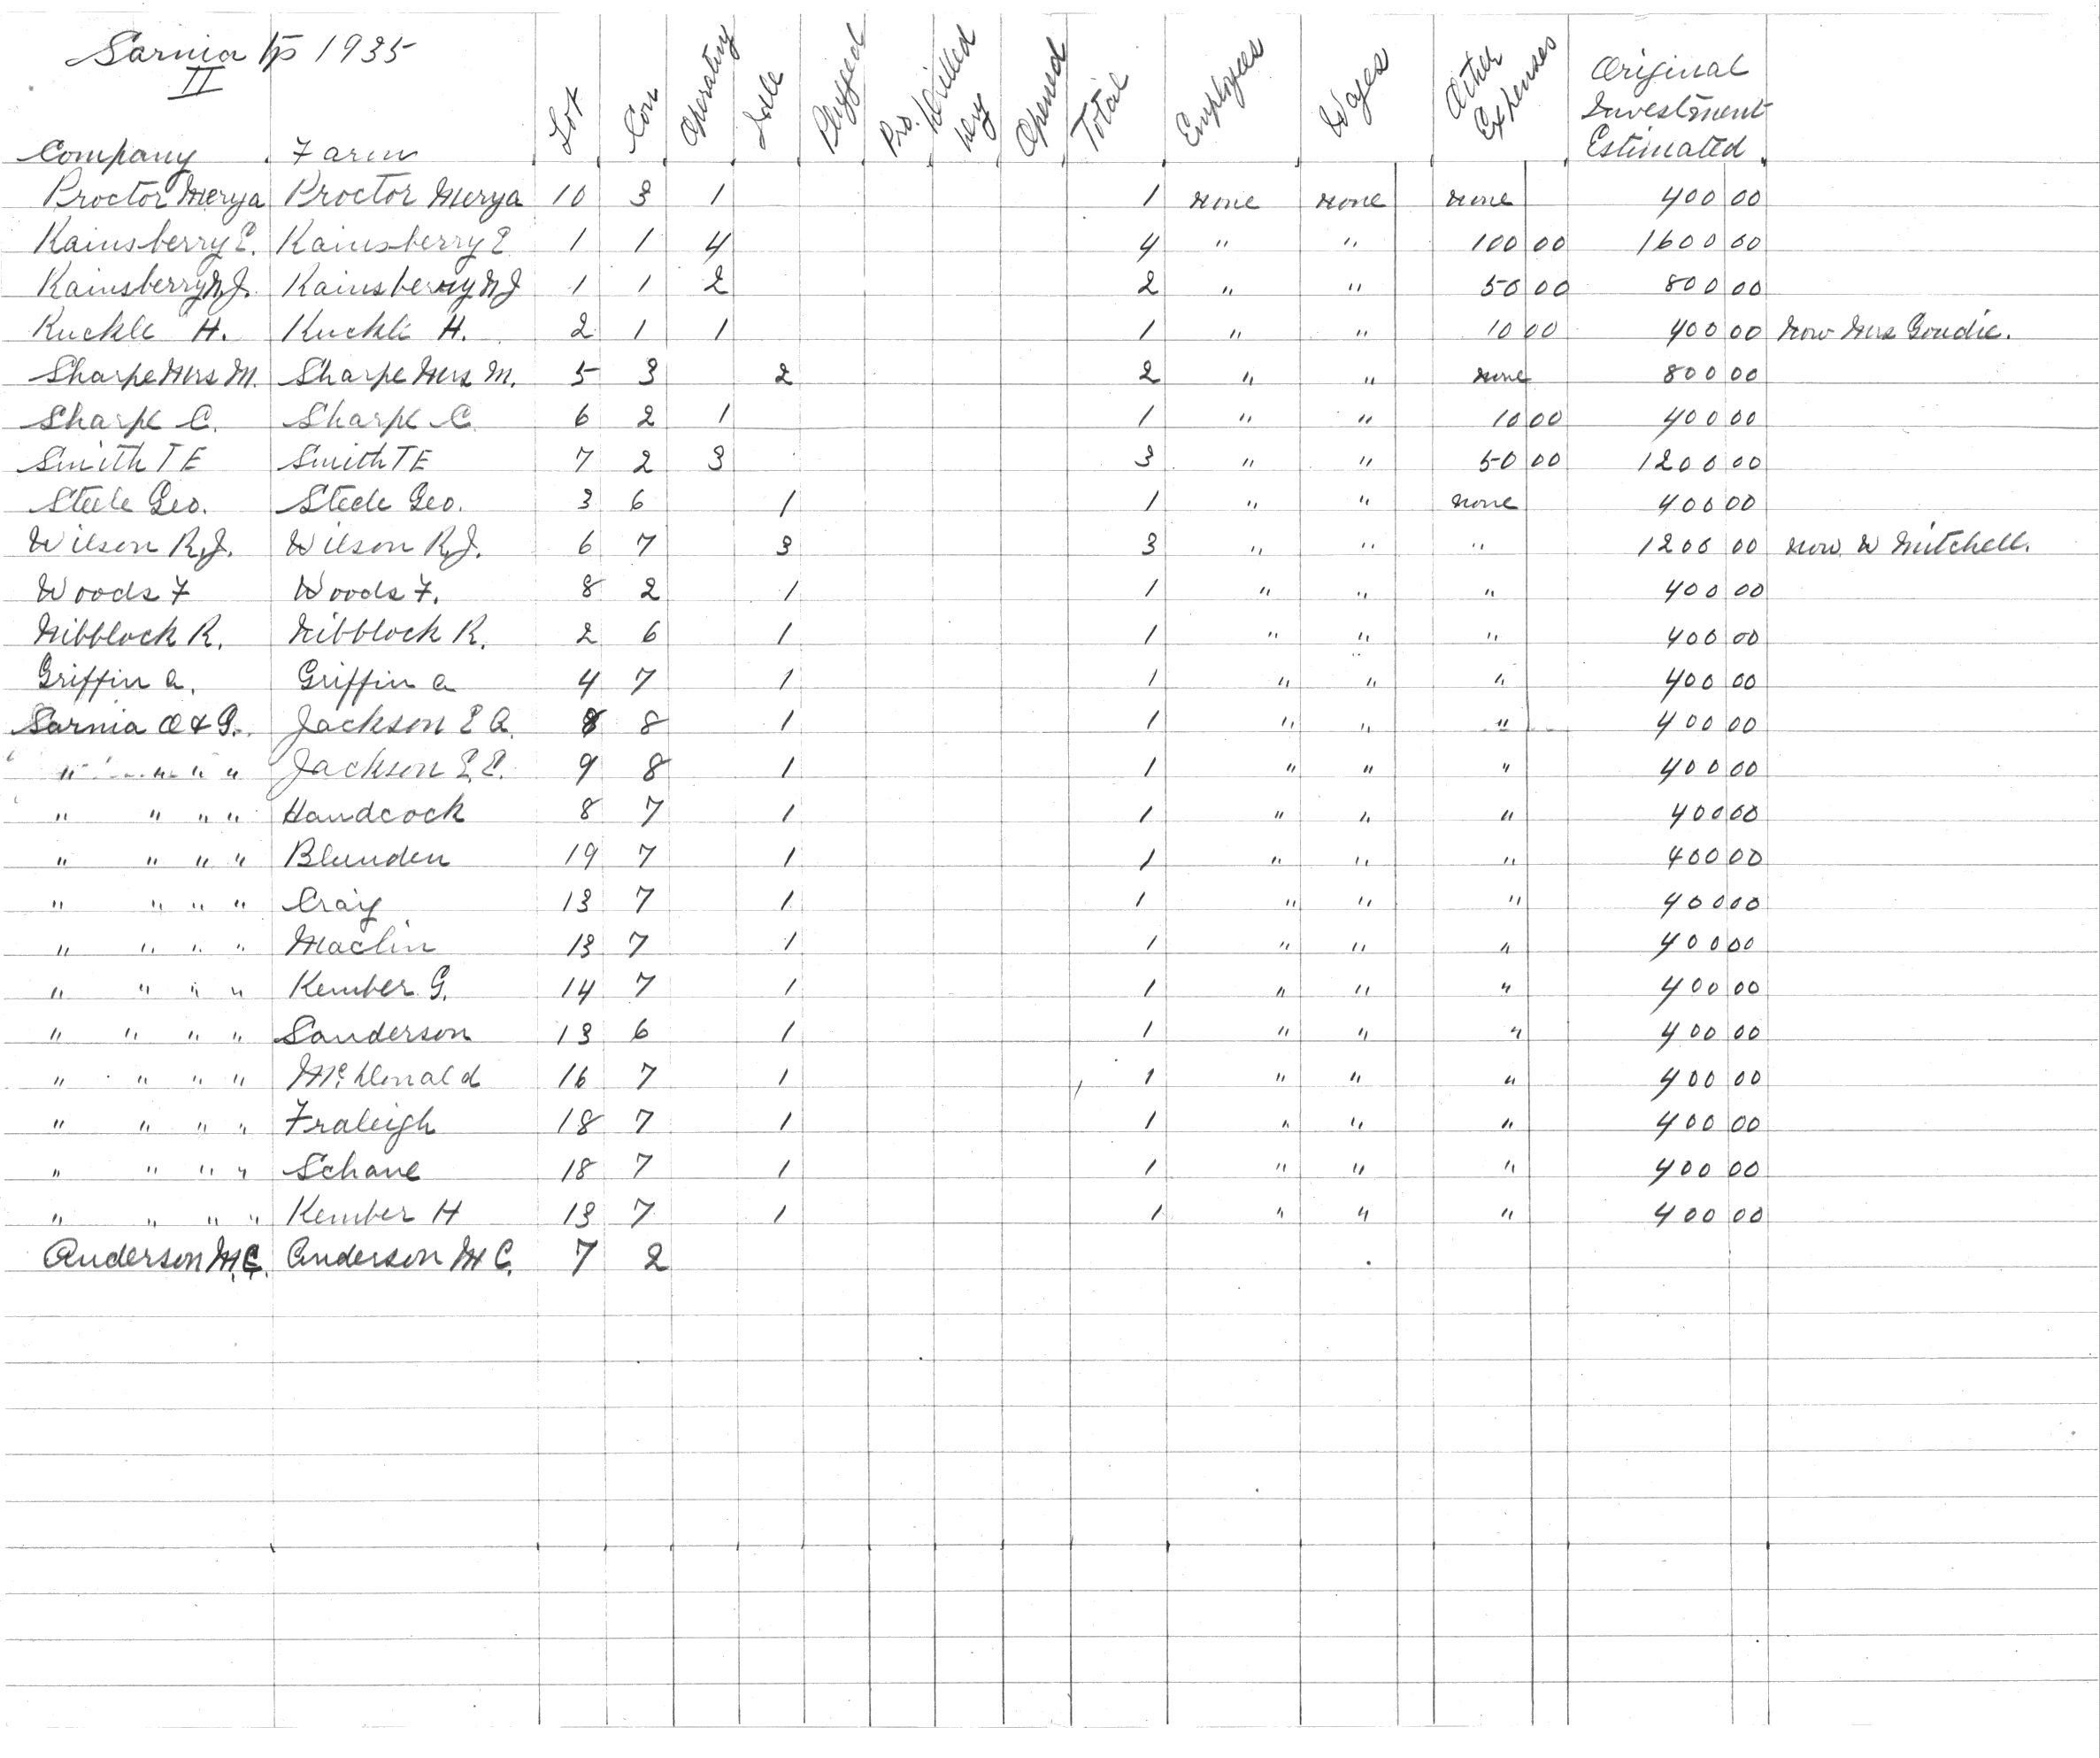 Sarnia Tp 1935
II
Company Farm Lot Con Operating Idle Plugged Pro. Drilled Dry Opened Total Employees Wages Other Expenses Original Investment Estimated
Proctor Merya Proctor Merya 10 3 1 1 none none none 400 00
Rainsberry E. Rainsberry E 1 1 4 4 " " 100 00 1600 00
Rainsberry N.J. Rainsberry N J 1 1 2 2 " " 50 00 800 00
Ruckle H. Ruckle H. 2 1 1 1 " " 10 00 400 00 Now Mrs Goudie.
Sharpe Mrs M. Sharpe Mrs M. 5 3 2 2 " " none 800 00
Sharpe C. Sharpe C. 6 2 1 1 " " 10 00 400 00
Smith T E Smith T E 7 2 3 3 " " 50 00 1200 00
Steele Geo. Steele Geo. 3 6 1 1 " " none 400 00
Wilson R.J. Wilson R.J. 6 7 3 3 " " " 1200 00 now W Mitchell.
Woods F Woods F. 8 2 1 1 " " " 400 00
Nibblock R. Nibblock R. 2 6 1 1 " " " 400 00
Griffin A. Griffin A 4 7 1 1 " " " 400 00
Sarnia O & G. Jackson E A. 8 8 1 1 " " " 400 00
" " " " Jackson E.E. 9 8 1 1 " " " 400 00
" " " " Handcock 8 7 1 1 " " " 400 00
" " " " Blunden 19 7 1 1 " " " 400 00
" " " " Craig 13 7 1 1 " " " 400 00
" " " " Maclin 13 7 1 1 " " " 400 00
" " " " Kember G. 14 7 1 1 " " " 400 00
" " " " Sanderson 13 6 1 1 " " " 400 00
" " " " McDonald 16 7 1 1 " " " 400 00
" " " " Fraleigh 18 7 1 1 " " " 400 00
" " " " Schave 18 7 1 1 " " " 400 00
" " " " Kember H 13 7 1 1 " " " 400 00
Anderson M.C. Anderson M C. 7 2